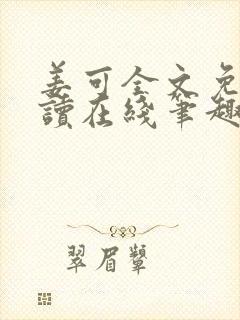 姜可全文免
讀在綫筆趣
翠眉顰